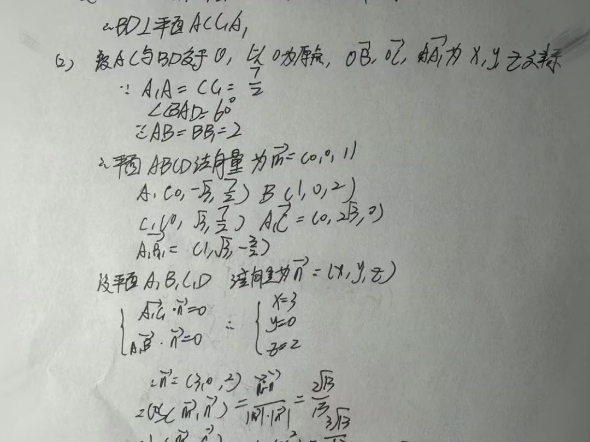 ∴BD⊥平面ACC₁A₁
(2) 设AC与BD交于O, 以O为原点, OB, OC, AA₁为x, y, z交标
∵ A₁A = CC₁ = 7/2
∠BAD=60°
∵AB=BB₁=2
∴平面ABCD法向量为m=(0,0,1)
A₁(0,-√3,7/2) B(1,0,2)
C₁(0,√3,7/2) A₁C=(0,2√3,0)
A₁B₁=(1,√3,-3/2)
设平面A₁B₁C₁D 法向量为n=(x,y,z)
{A₁C₁·n=0 ∴ {x=3
A₁B·n=0 y=0
z=2
∴n=(3,0,2)
∴cos(m,n)=m·n/|m|·|n|=2√13/13
3√13